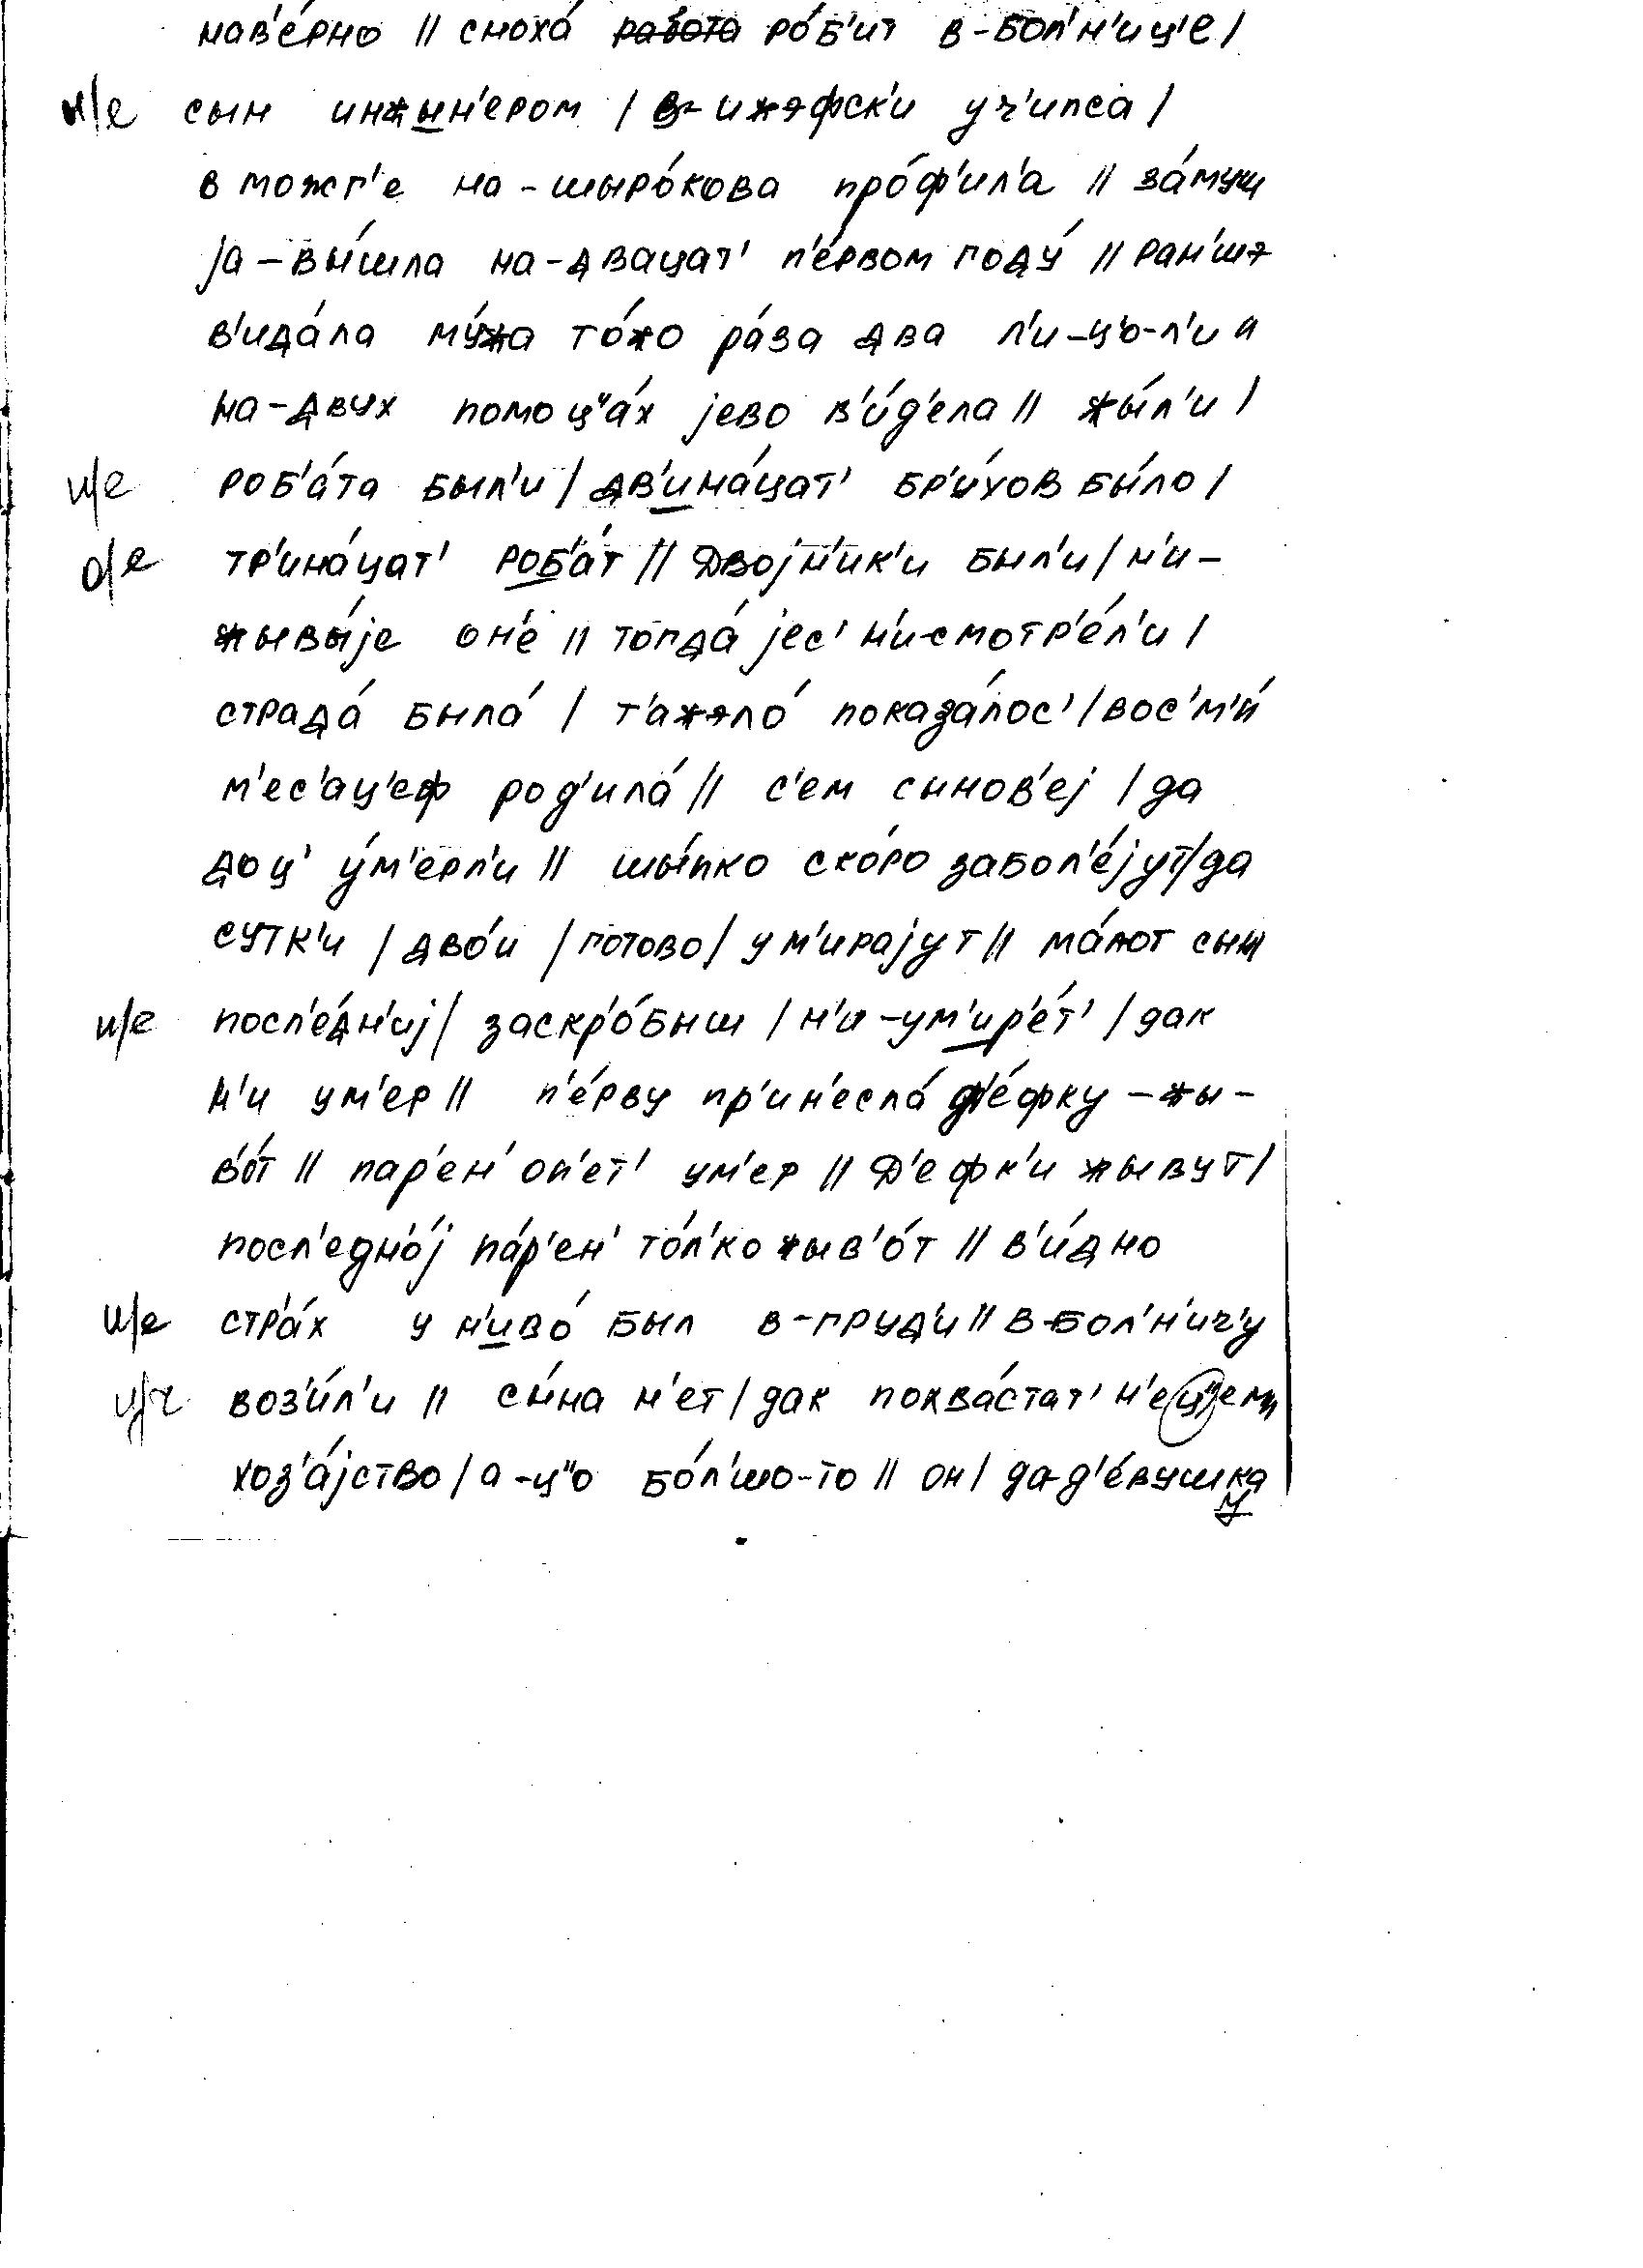 нав'е́рно // сноха́ ~~работа~~ ро́б'ит в-бол'н'иц'е /
и/е сын инжын'ером / в-ижэфск'и уч'ипса /
в можг'е на-шыро́кова про́ф'ил'а // за́муш
jа-вы́шла на-двацат' п'е́рвом году́ // ран'шэ
в'ида́ла му́жа то́жо ра́за два л'и-ц'о-л'и а
на-двух помоц"а́х jево в'и́д'ела // жы́л'и /
и/е роб'а́та был'и / дв'ина́цат' бр'и́хов бы́ло /
о/е тр'ина́цат' роб'а́т // двоjн'ик'и был'и / н'и-
жывы́jе он'е // тогда́ jес' н'и-смотр'е́л'и /
страда́ была́ / т'ажэло́ показа́лос' / вос'м'и́
м'ес'ац'еф род'ила́ // с'ем сынов'еj / да
доц' у́м'ерл'и // шы́пко ско́ро забол'е́jут / да
сутк'и / дво́и / готово / ум'ираjут // ма́лот сын
и/е посл'е́дн'иj / заскр'о́быш / н'и-ум'ир'е́т' / дак
н'и ум'ер // п'е́рву пр'ин'есла́ д'е́фку - жы-
в'о́т // пар'ен' оп'ет' ум'ер // д'ефк'и жывут /
посл'едно́j па́р'ен' то́л'ко жыв'о́т // в'и́дно
и/е стра́х у н'иво́ был в-груд'и // в-бол'н'иц'у
ц/ч воз'и́л'и // сы́на н'ет / дак похва́стат' н'ец"ем
хоз'а́jство / а-ц"о бо́л'шо-то // он / да-д'е́вушка
у